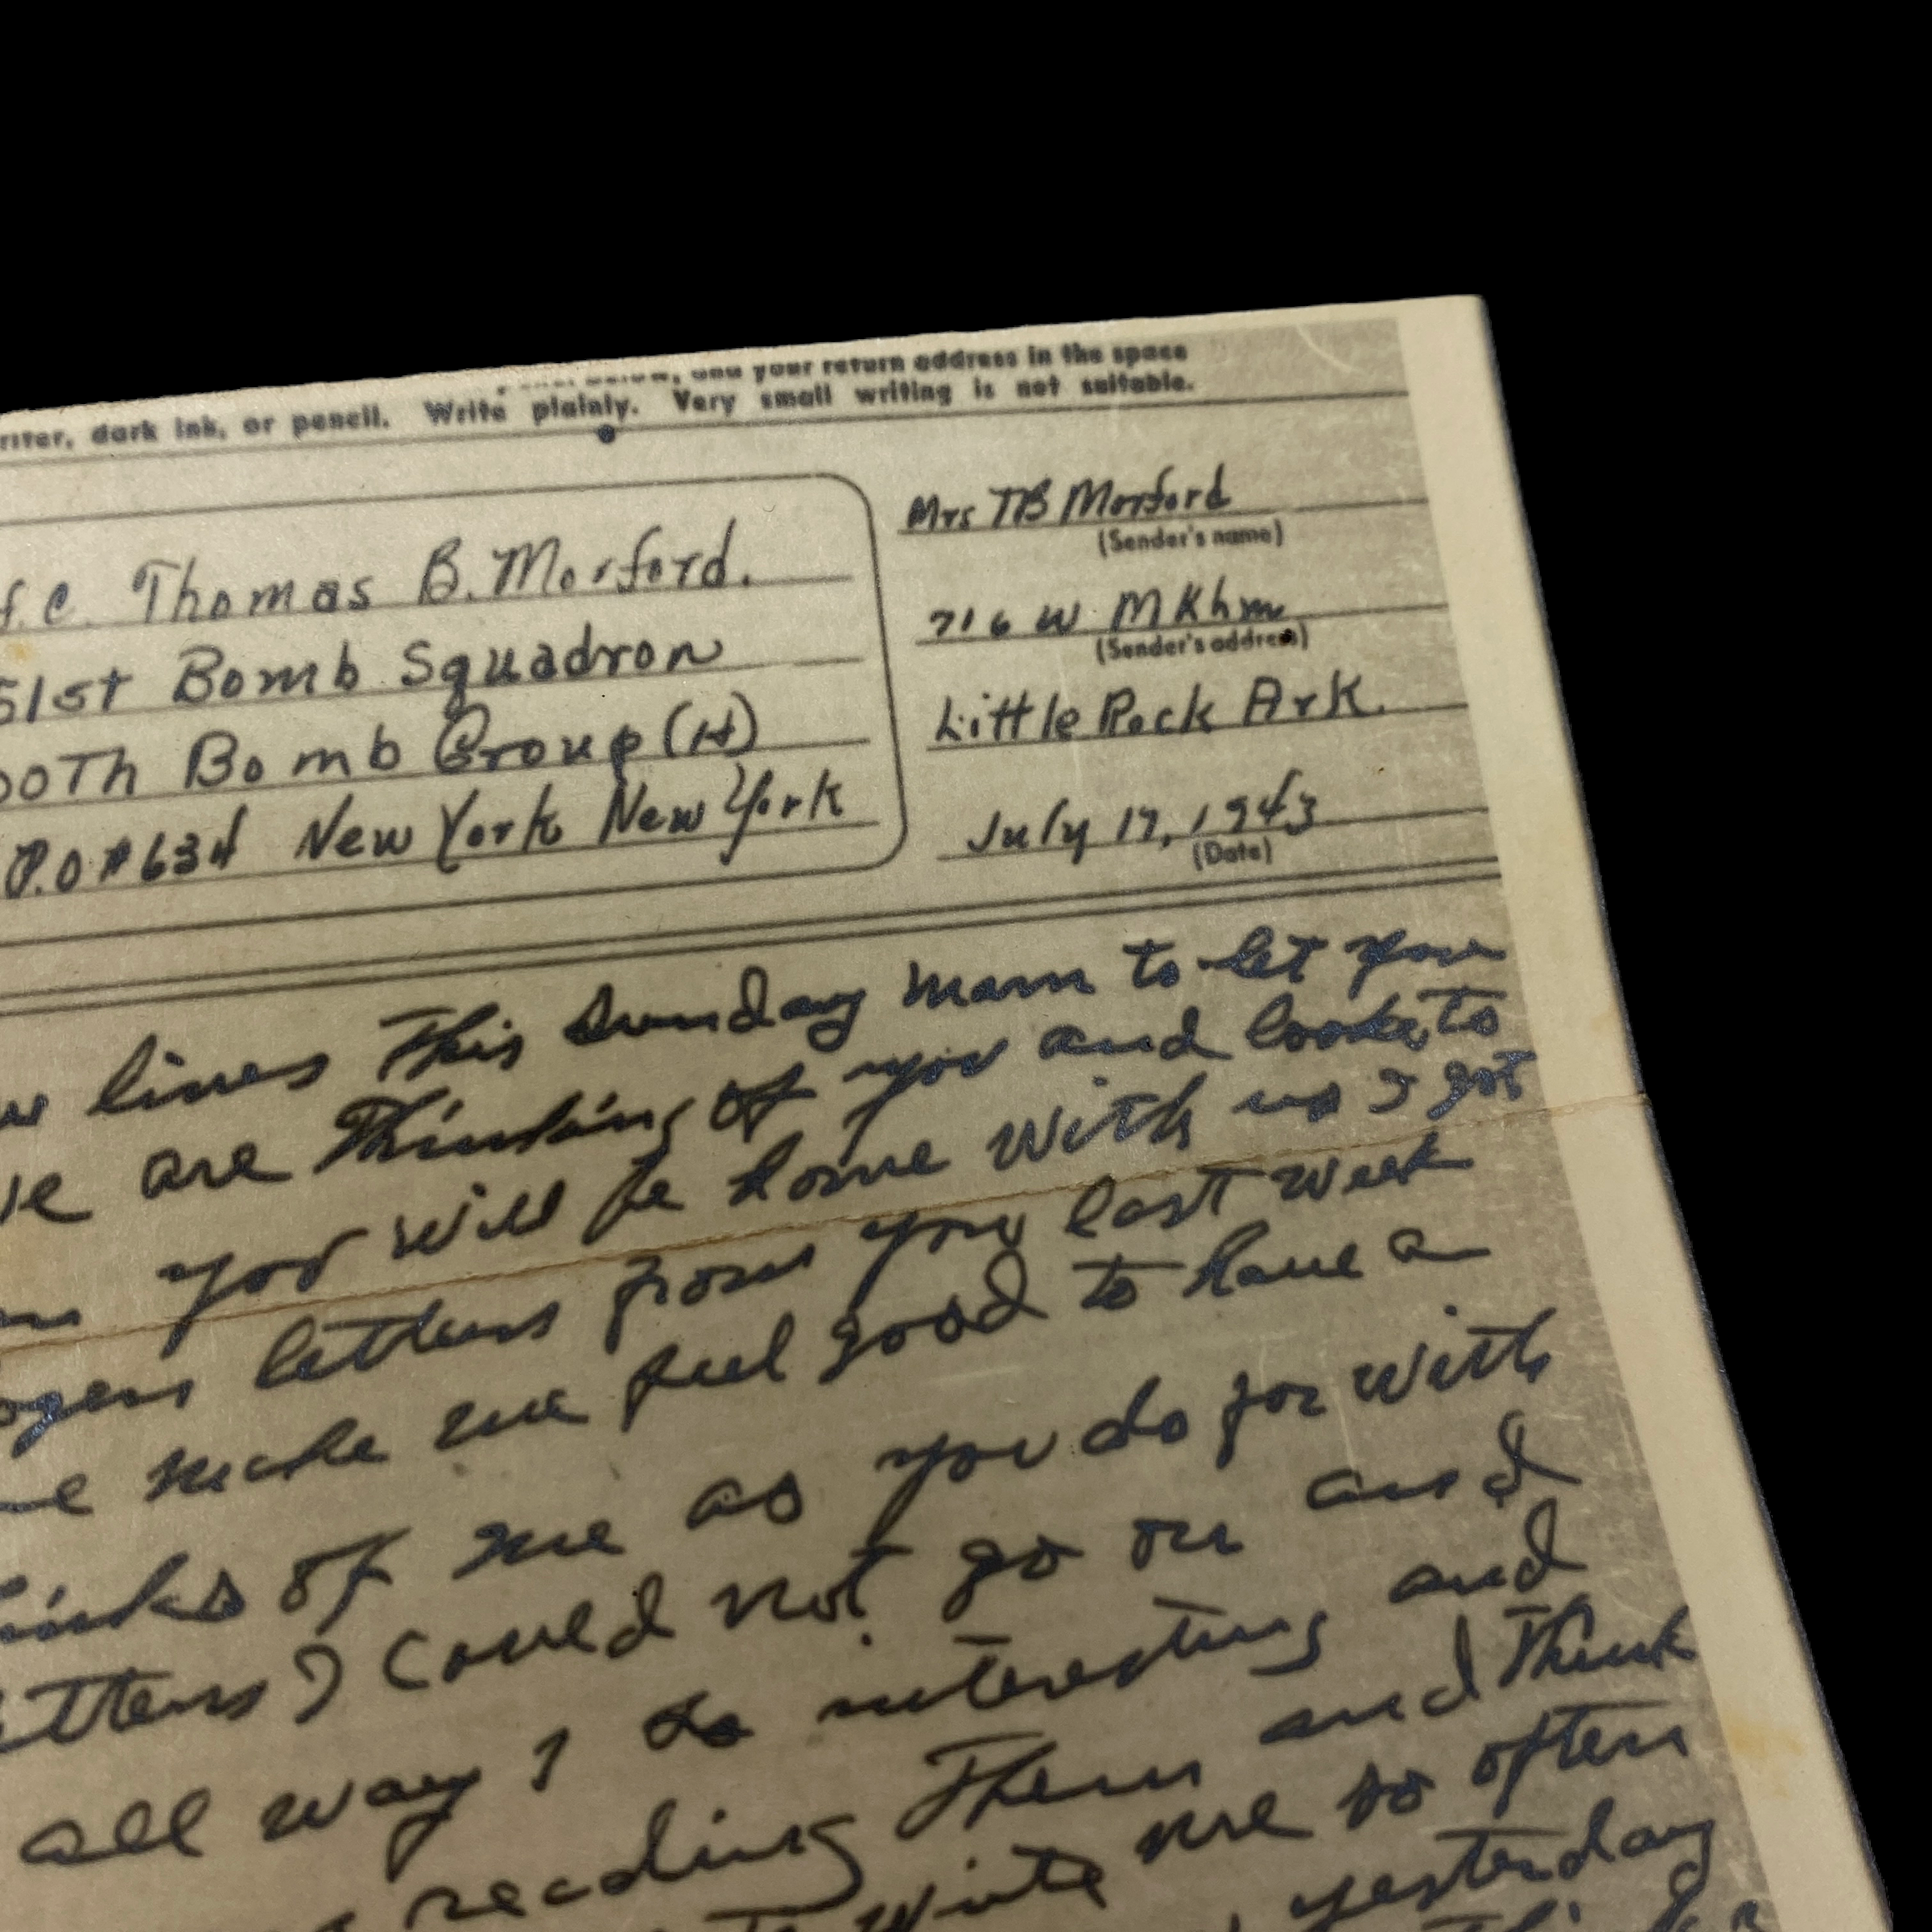 your return address in the space
dark ink, or pencil. Write plainly. Very small writing is not suitable.
Thomas B. Morford.
51st Bomb Squadron
00Th Bomb Group (H)
P.O #634 New York New York
Mrs TB Morford
(Sender's name)
716 W
(Sender's address)
Little Rock Ark.
July 17, 1943
(Date)
lines This Sunday morn to let you
are Thinking of you and looks to
you will be home with us I got
letters from you last week
make me feel good to have a
of me as you do for with
I could not go on and
all way so interesting and
reading Them and Think
write me so often
yesterday